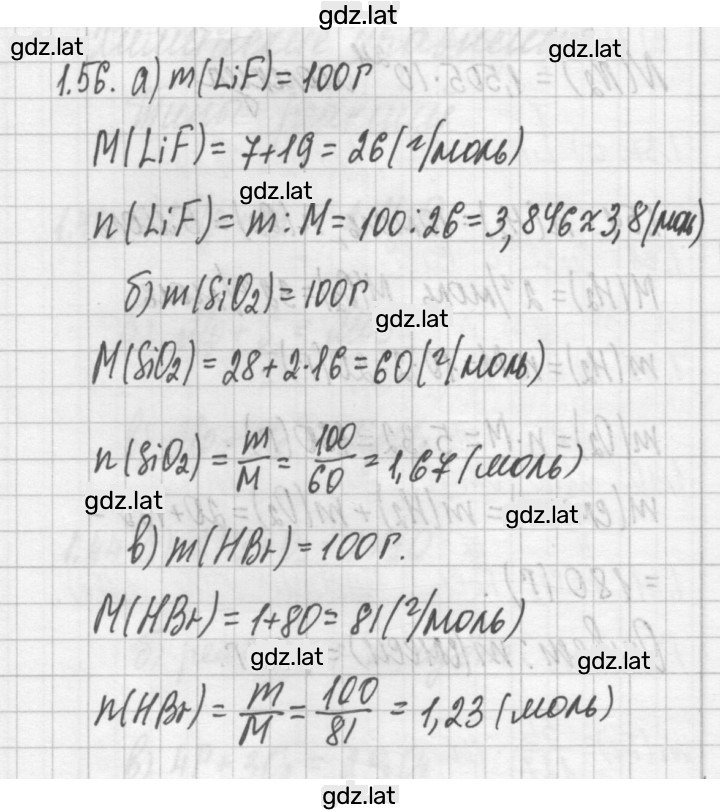 gdz.lat
gdz.lat
gdz.lat
1.56. а) m(LiF) = 100г
M(LiF) = 7+19 = 26(г/моль)
gdz.lat
n(LiF) = m : M = 100:26 = 3,846 ≈ 3,8(моль)
б) m(SiO₂) = 100г
gdz.lat
M(SiO₂) = 28 + 2·16 = 60(г/моль)
n(SiO₂) = m/M = 100/60 = 1,67(моль)
gdz.lat
gdz.lat
в) m(HBr) = 100г.
M(HBr) = 1+80 = 81(г/моль)
gdz.lat
gdz.lat
n(HBr) = m/M = 100/81 = 1,23(моль)
gdz.lat